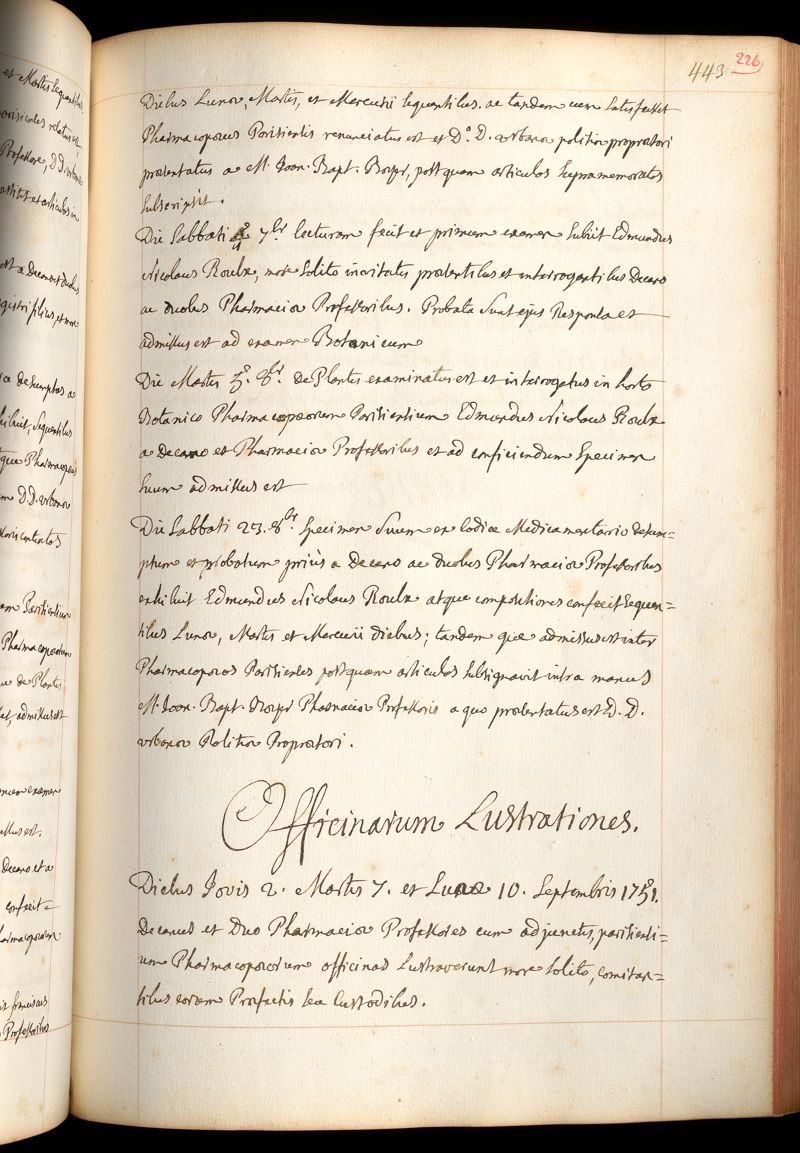 443 226
Diebus Lunæ, Martis, et Mercurii sequentibus. ac tandem cum satisfecisset
Pharmacopœus Parisiensis renunciatus est et D.º D. urbanæ politiæ proprætori
præsentatus a M. Joan. Bapt. Boyer, postquam articulos supramemoratos
subscripsit.
Die Sabbati 7.br lecturam fecit et primum examen subiit Edmundus
Nicolaus Roulx, more solito invitatis præsentibus et interrogantibus Decano
ac duobus Pharmaciæ Professoribus. Probata sunt ejus Responsa et
admissus est ad examen Botanicum
Die Martis 5.º 8.br De Plantis examinatus est et interrogatus in horto
Botanico Pharmacopæorum Parisiensium Edmundus Nicolaus Roulx
a Decano et Pharmaciæ Professoribus et ad conficiendum Specimen
suum admissus est
Die Sabbati 23. 8.br Specimen Suum ex Codice Medicamentario desum=
ptum et probatum priùs a Decano ac duobus Pharmaciæ Professoribus
exhibuit Edmundus Nicolaus Roulx atque compositiones confecit sequen=
tibus Lunæ, Martis et Mercurii diebus; tandem que admissus est inter
Pharmacopœos Parisienses postquam articulos subsignavit infra manus
M. Joan. Bapt. Boyer Pharmaciæ Professoris a quo præsentatus est D. D.
urbanæ Politiæ Proprætori.
Officinarum Lustrationes.
Diebus Jovis 2. Martis 7. et Lunæ 10. Septembris 1751.
Decanus et Duo Pharmaciæ Professores cum adjunctis, parisiensi=
um Pharmacopœorum officinas Lustraverunt more solito, comitan=
tibus eorum Præfectis seu Custodibus.